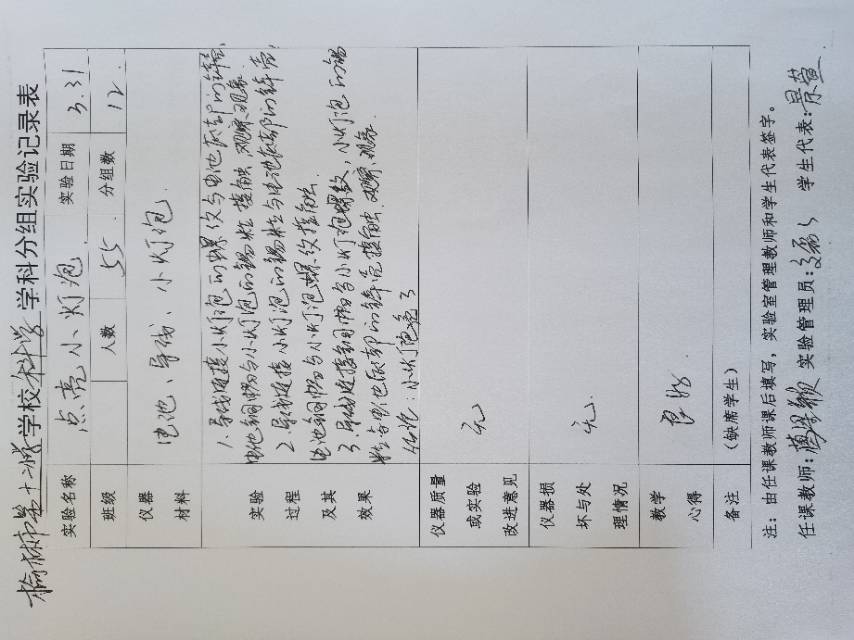 榆林市第十二小学学校科学学科分组实验记录表
实验名称 点亮小灯泡 实验日期 3.31
班级 人数 55 分组数 12
仪器材料 电池、导线、小灯泡.
实验过程及其效果
1.导线连接小灯泡的螺纹与电池底部的锌壳,
电池铜帽与小灯泡的锡粒接触,观察现象.
2.导线连接小灯泡的锡粒与电池底部的锌壳,
电池铜帽与小灯泡螺纹接触.
3.导线连接铜帽与小灯泡螺纹,小灯泡的锡
粒与电池底部的锌壳接触.观察现象.
结论:小灯泡亮了
仪器质量或实验改进意见 无
仪器损坏与处理情况 无.
教学心得 良好
备注 (缺席学生)
注:由任课教师课后填写,实验室管理教师和学生代表签字。
任课教师: 实验管理员: 学生代表: